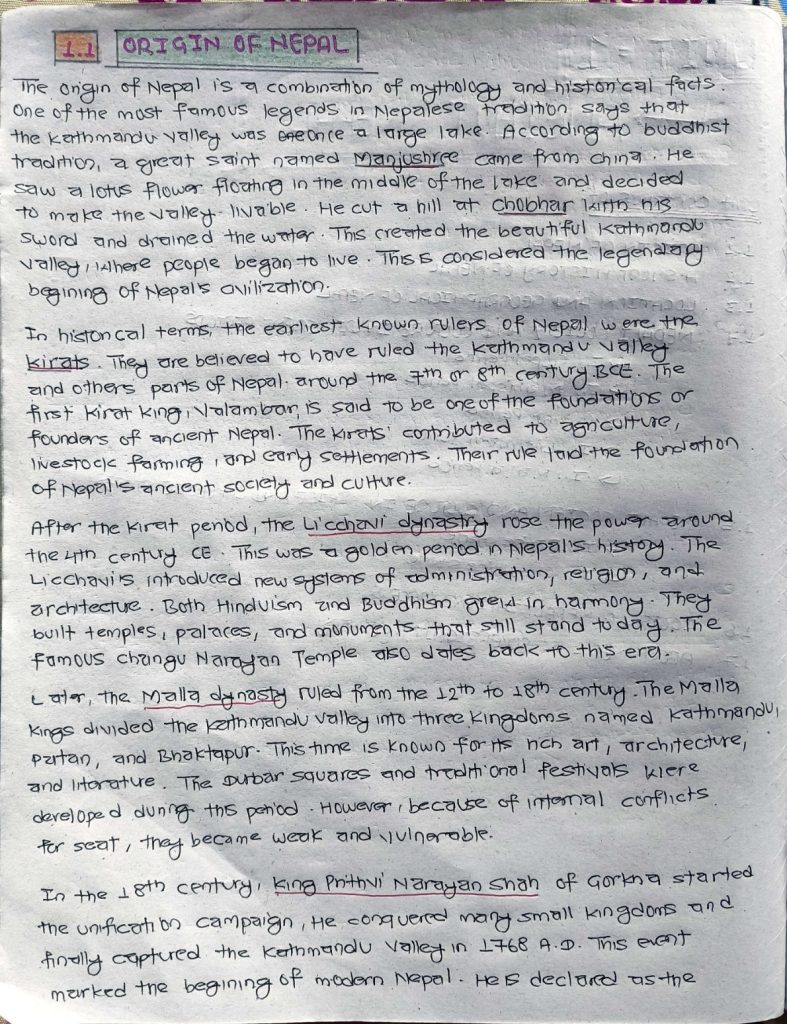 1.1 ORIGIN OF NEPAL
The origin of Nepal is a combination of mythology and historical facts.
One of the most famous legends in Nepalese tradition says that
the Kathmandu Valley was once a large lake. According to buddhist
tradition, a great saint named Manjushree came from china. He
saw a lotus flower floating in the middle of the lake and decided
to make the valley livable. He cut a hill at Chobhar with his
sword and drained the water. This created the beautiful Kathmandu
valley, where people began to live. This is considered the legendary
begining of Nepal's civilization.
In historical terms, the earliest known rulers of Nepal were the
kirats. They are believed to have ruled the Kathmandu valley
and others parts of Nepal. around the 7th or 8th century BCE. The
first Kirat King, Yalambar, is said to be one of the foundations or
founders of ancient Nepal. The Kirats' contributed to agriculture,
livestock farming, and early settlements. Their rule laid the foundation
of Nepal's ancient society and culture.
After the Kirat period, the Licchavi dynastry rose the power around
the 4th century CE. This was a golden period in Nepal's history. The
Licchavi's introduced new systems of administration, religion, and
architectue. Both Hinduism and Buddhism grew in harmony. They
built temples, palaces, and monuments that still stand today. The
famous Changu Narayan Temple also dates back to this era.
Later, the Malla dynasty ruled from the 12th to 18th century. The Malla
Kings divided the Kathmandu Valley into three kingdoms named Kathmandu,
Partan, and Bhaktapur. This time is known for its rich art, architecture,
and literature. The Durbar squares and traditional festivals were
developed during this period. However, because of internal conflicts
for seat, they became weak and vulnerable.
In the 18th century, King Prithvi Narayan Shah of Gorkha started
the unification campaign, He conquered many small kingdoms and
finally captured the Kathmandu Valley in 1768 A.D. This event
marked the begining of modern Nepal. He is declared as the